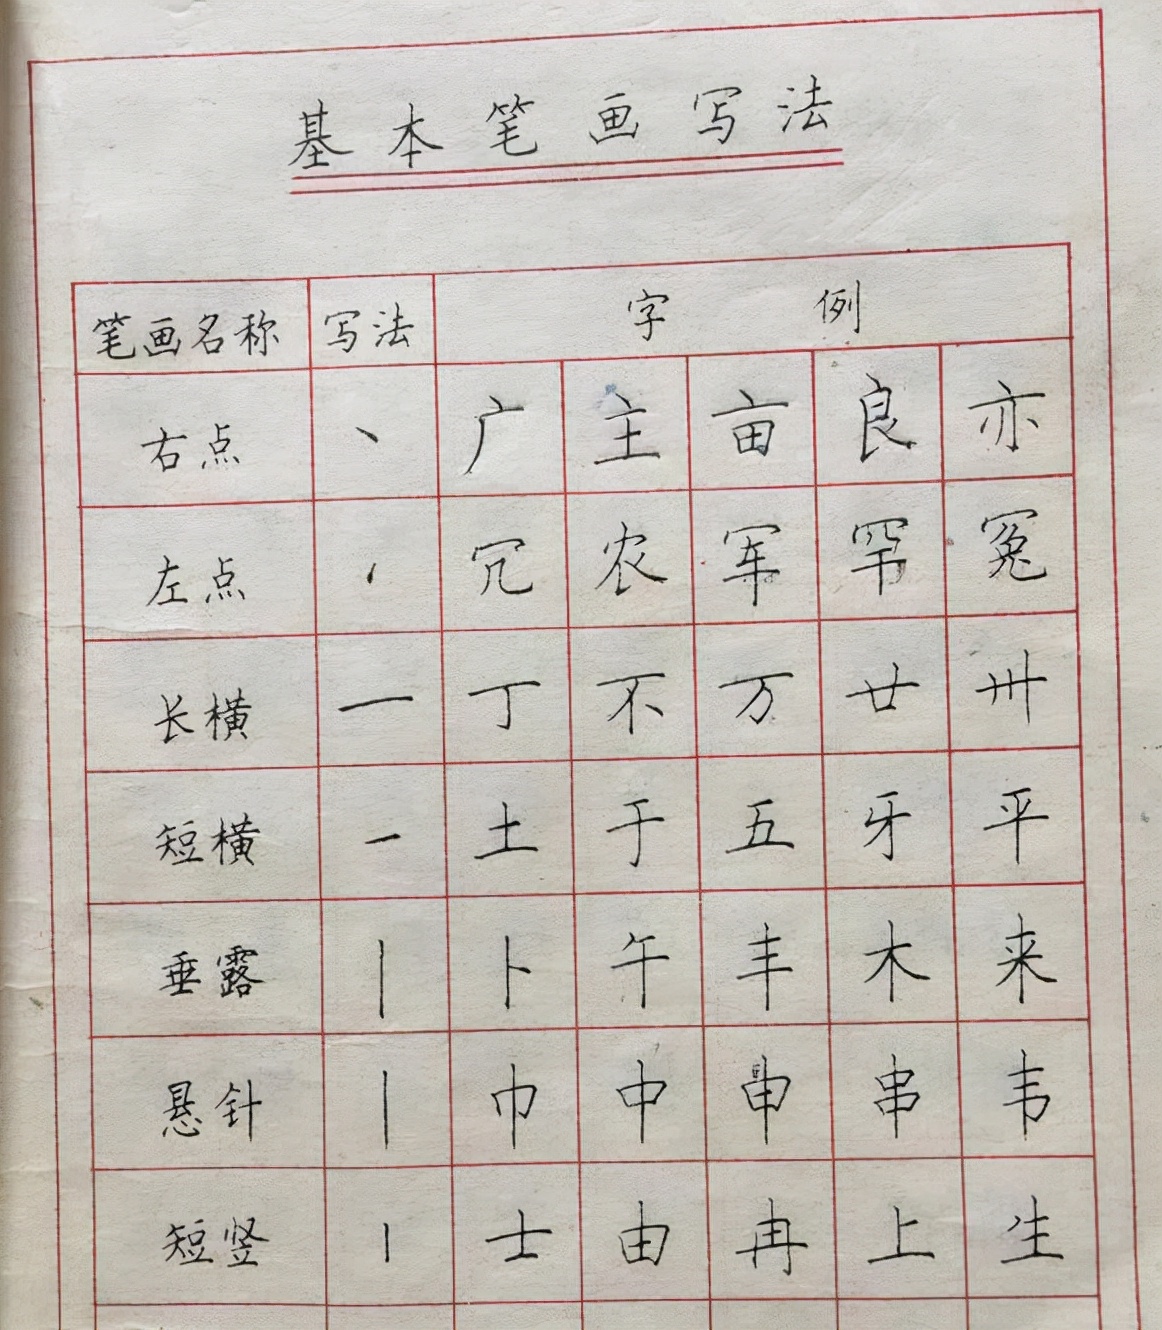 基本笔画写法
笔画名称 写法 字例
右点 丶 广 主 亩 良 亦
左点 冗 农 军 罕 冤
长横 一 丁 不 万 廿 卅
短横 一 土 于 五 牙 平
垂露 丨 卜 午 丰 木 来
悬针 丨 巾 中 申 串 韦
短竖 丨 士 由 冉 上 生